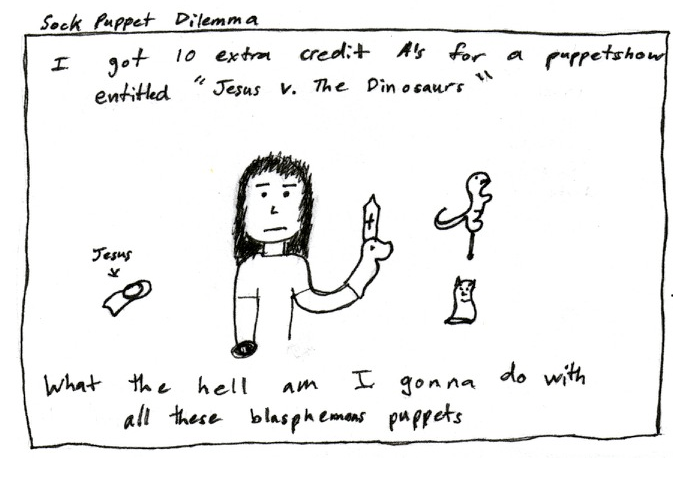 Sock Puppet Dilemma
I got 10 extra credit A's for a puppetshow
entitled "Jesus v. The Dinosaurs"
Jesus
What the hell am I gonna do with
all these blasphemous puppets